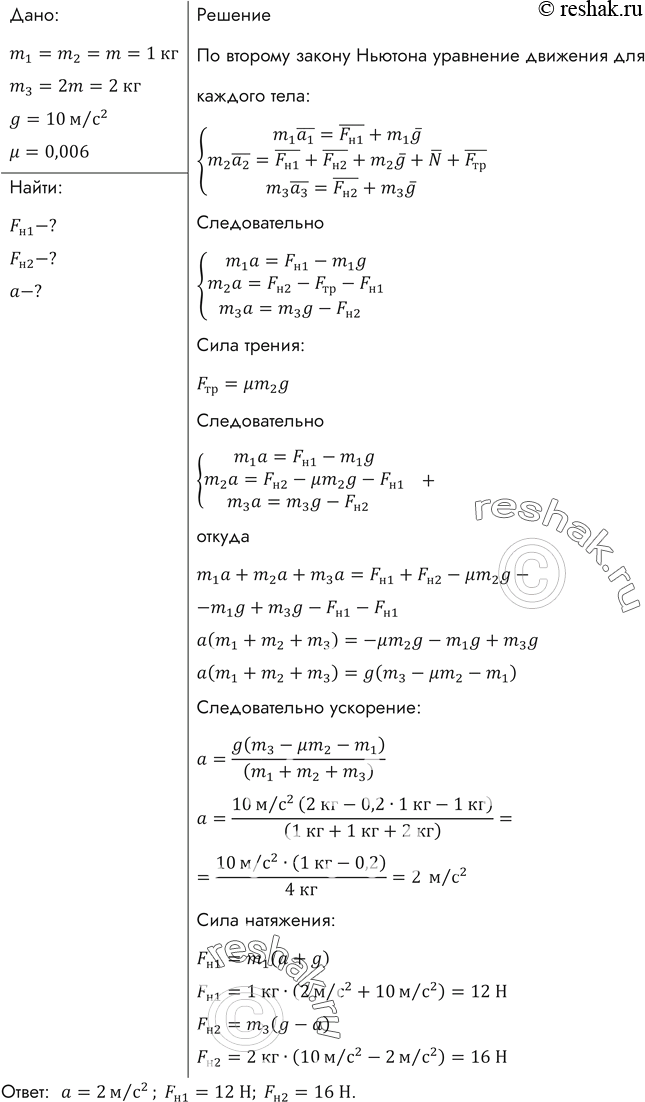 © reshak.ru
Дано:
m₁ = m₂ = m = 1 кг
m₃ = 2m = 2 кг
g = 10 м/с²
μ = 0,006
Найти:
Fн1−?
Fн2−?
a−?
Решение
По второму закону Ньютона уравнение движения для
каждого тела:
m₁a̅₁ = F̅н1 + m₁g̅
m₂a̅₂ = F̅н1 + F̅н2 + m₂g̅ + N̅ + F̅тр
m₃a̅₃ = F̅н2 + m₃g̅
Следовательно
m₁a = Fн1 − m₁g
m₂a = Fн2 − Fтр − Fн1
m₃a = m₃g − Fн2
Сила трения:
Fтр = μm₂g
Следовательно
m₁a = Fн1 − m₁g
m₂a = Fн2 − μm₂g − Fн1 +
m₃a = m₃g − Fн2
откуда
m₁a + m₂a + m₃a = Fн1 + Fн2 − μm₂g −
−m₁g + m₃g − Fн1 − Fн1
a(m₁ + m₂ + m₃) = −μm₂g − m₁g + m₃g
a(m₁ + m₂ + m₃) = g(m₃ − μm₂ − m₁)
Следовательно ускорение:
a = g(m₃ − μm₂ − m₁) / (m₁ + m₂ + m₃)
a = 10 м/с² (2 кг − 0,2 · 1 кг − 1 кг) / (1 кг + 1 кг + 2 кг) =
= 10 м/с² · (1 кг − 0,2) / 4 кг = 2 м/с²
Сила натяжения:
Fн1 = m₁(a + g)
Fн1 = 1 кг · (2 м/с² + 10 м/с²) = 12 Н
Fн2 = m₃(g − a)
Fн2 = 2 кг · (10 м/с² − 2 м/с²) = 16 Н
Ответ: a = 2 м/с² ; Fн1 = 12 Н; Fн2 = 16 Н.
reshak.ru
©
reshak.ru
©